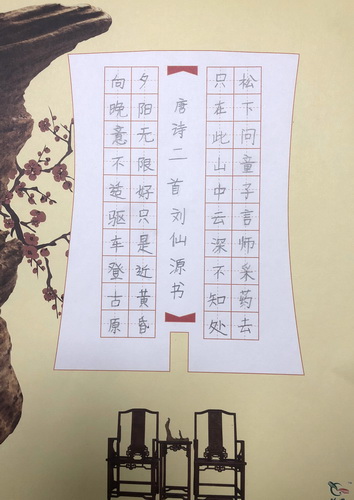 松下问童子言师采药去
只在此山中云深不知处
唐诗二首刘仙源书
夕阳无限好只是近黄昏
向晚意不楚驱车登古原